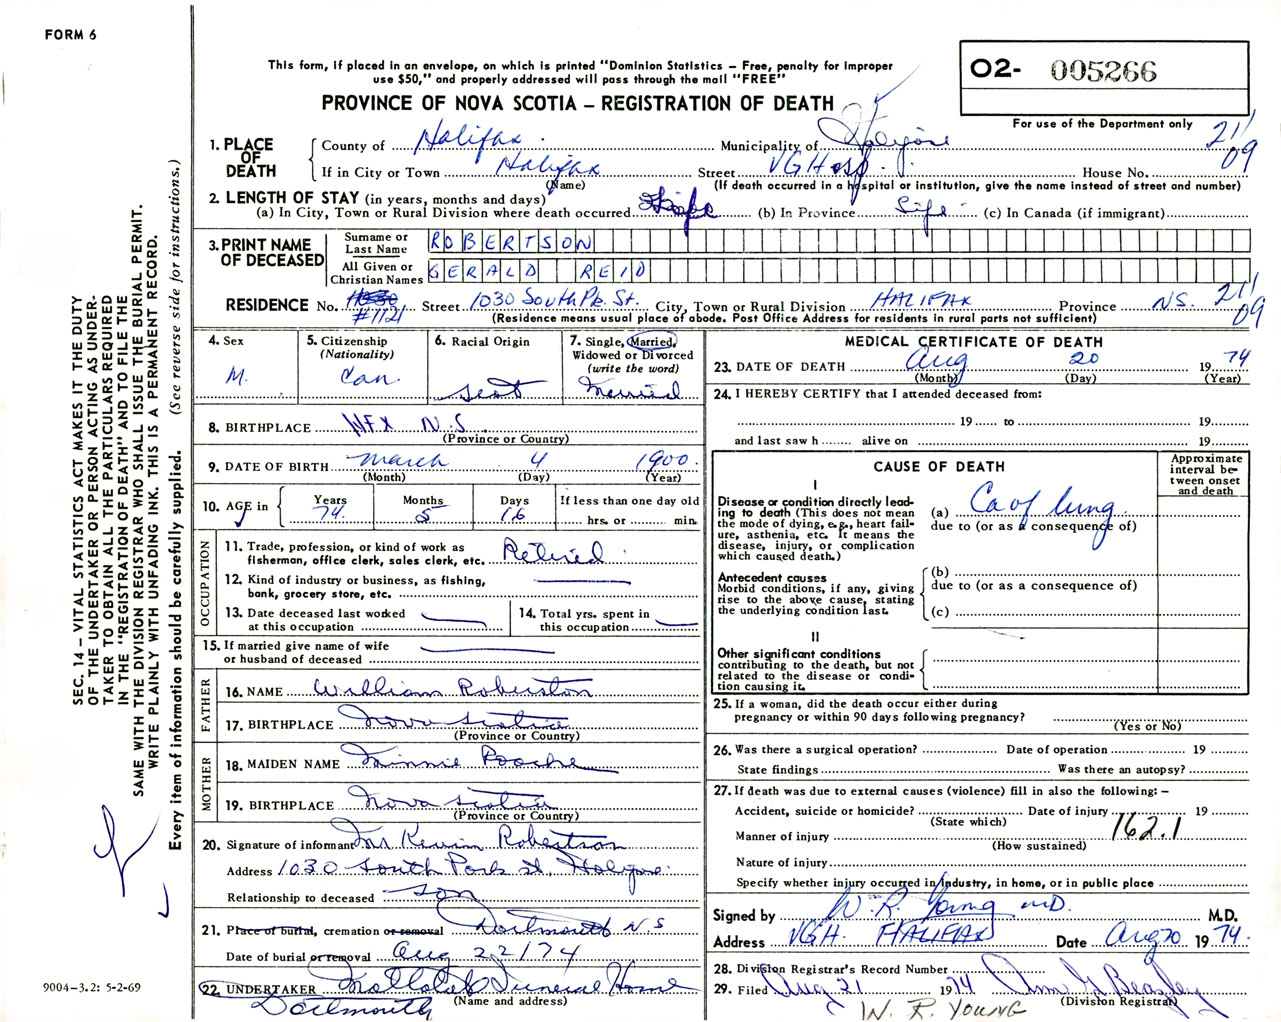 FORM 6
This form, if placed in an envelope, on which is printed "Dominion Statistics – Free, penalty for improper
use $50," and properly addressed will pass through the mail "FREE"
PROVINCE OF NOVA SCOTIA – REGISTRATION OF DEATH
O2- 005266
For use of the Department only
21/09
1. PLACE OF DEATH
County of Halifax Municipality of Halifax
If in City or Town Halifax Street VGHosp. House No.
(Name) (If death occurred in a hospital or institution, give the name instead of street and number)
2. LENGTH OF STAY (in years, months and days)
(a) In City, Town or Rural Division where death occurred (b) In Province Life (c) In Canada (if immigrant)
3. PRINT NAME OF DECEASED
Surname or Last Name ROBERTSON
All Given or Christian Names GERALD REID
RESIDENCE No. #1121 Street 1030 South Pk. St. City, Town or Rural Division HALIFAX Province N.S. 21/09
(Residence means usual place of abode. Post Office Address for residents in rural parts not sufficient)
4. Sex M.
5. Citizenship (Nationality) Can.
6. Racial Origin Scot
7. Single, Married, Widowed or Divorced (write the word) Married
8. BIRTHPLACE HFX N.S.
(Province or Country)
9. DATE OF BIRTH March 4 1900
(Month) (Day) (Year)
10. AGE in Years 74 Months 5 Days 16 If less than one day old hrs. or min.
OCCUPATION
11. Trade, profession, or kind of work as
fisherman, office clerk, sales clerk, etc. Retired
12. Kind of industry or business, as fishing,
bank, grocery store, etc.
13. Date deceased last worked
at this occupation
14. Total yrs. spent in
this occupation
15. If married give name of wife
or husband of deceased
FATHER
16. NAME William Robertson
17. BIRTHPLACE Nova Scotia
(Province or Country)
MOTHER
18. MAIDEN NAME Minnie Roache
19. BIRTHPLACE Nova Scotia
(Province or Country)
20. Signature of informant Mr Kevin Robertson
Address 1030 South Park St, Halifax
Relationship to deceased son
21. Place of burial, cremation or removal Dartmouth N S
Date of burial or removal Aug 22/74
22. UNDERTAKER Funeral Home
(Name and address)
Dartmouth
MEDICAL CERTIFICATE OF DEATH
23. DATE OF DEATH Aug 20 1974
(Month) (Day) (Year)
24. I HEREBY CERTIFY that I attended deceased from:
19 to 19
and last saw h alive on 19
CAUSE OF DEATH
Approximate interval between onset and death
I
Disease or condition directly lead-
ing to death (This does not mean
the mode of dying, e.g., heart fail-
ure, asthenia, etc. It means the
disease, injury, or complication
which caused death.)
(a) Ca of lung
due to (or as a consequence of)
Antecedent causes
Morbid conditions, if any, giving
rise to the above cause, stating
the underlying condition last.
(b)
due to (or as a consequence of)
(c)
II
Other significant conditions
contributing to the death, but not
related to the disease or condi-
tion causing it.
25. If a woman, did the death occur either during
pregnancy or within 90 days following pregnancy?
(Yes or No)
26. Was there a surgical operation? Date of operation 19
State findings Was there an autopsy?
27. If death was due to external causes (violence) fill in also the following: –
Accident, suicide or homicide? Date of injury 19
(State which) 162.1
Manner of injury
(How sustained)
Nature of injury
Specify whether injury occurred in industry, in home, or in public place
Signed by W. R. Young MD. M.D.
Address VGH. HALIFAX Date Aug 20 1974.
28. Division Registrar's Record Number
29. Filed Aug 21 1974 Ann G Beazley
(Division Registrar)
W. R. YOUNG
SEC. 14 – VITAL STATISTICS ACT MAKES IT THE DUTY
OF THE UNDERTAKER OR PERSON ACTING AS UNDER-
TAKER TO OBTAIN ALL THE PARTICULARS REQUIRED
IN THE "REGISTRATION OF DEATH" AND TO FILE THE
SAME WITH THE DIVISION REGISTRAR WHO SHALL ISSUE THE BURIAL PERMIT.
WRITE PLAINLY WITH UNFADING INK. THIS IS A PERMANENT RECORD.
Every item of information should be carefully supplied. (See reverse side for instructions.)
9004-3.2: 5-2-69